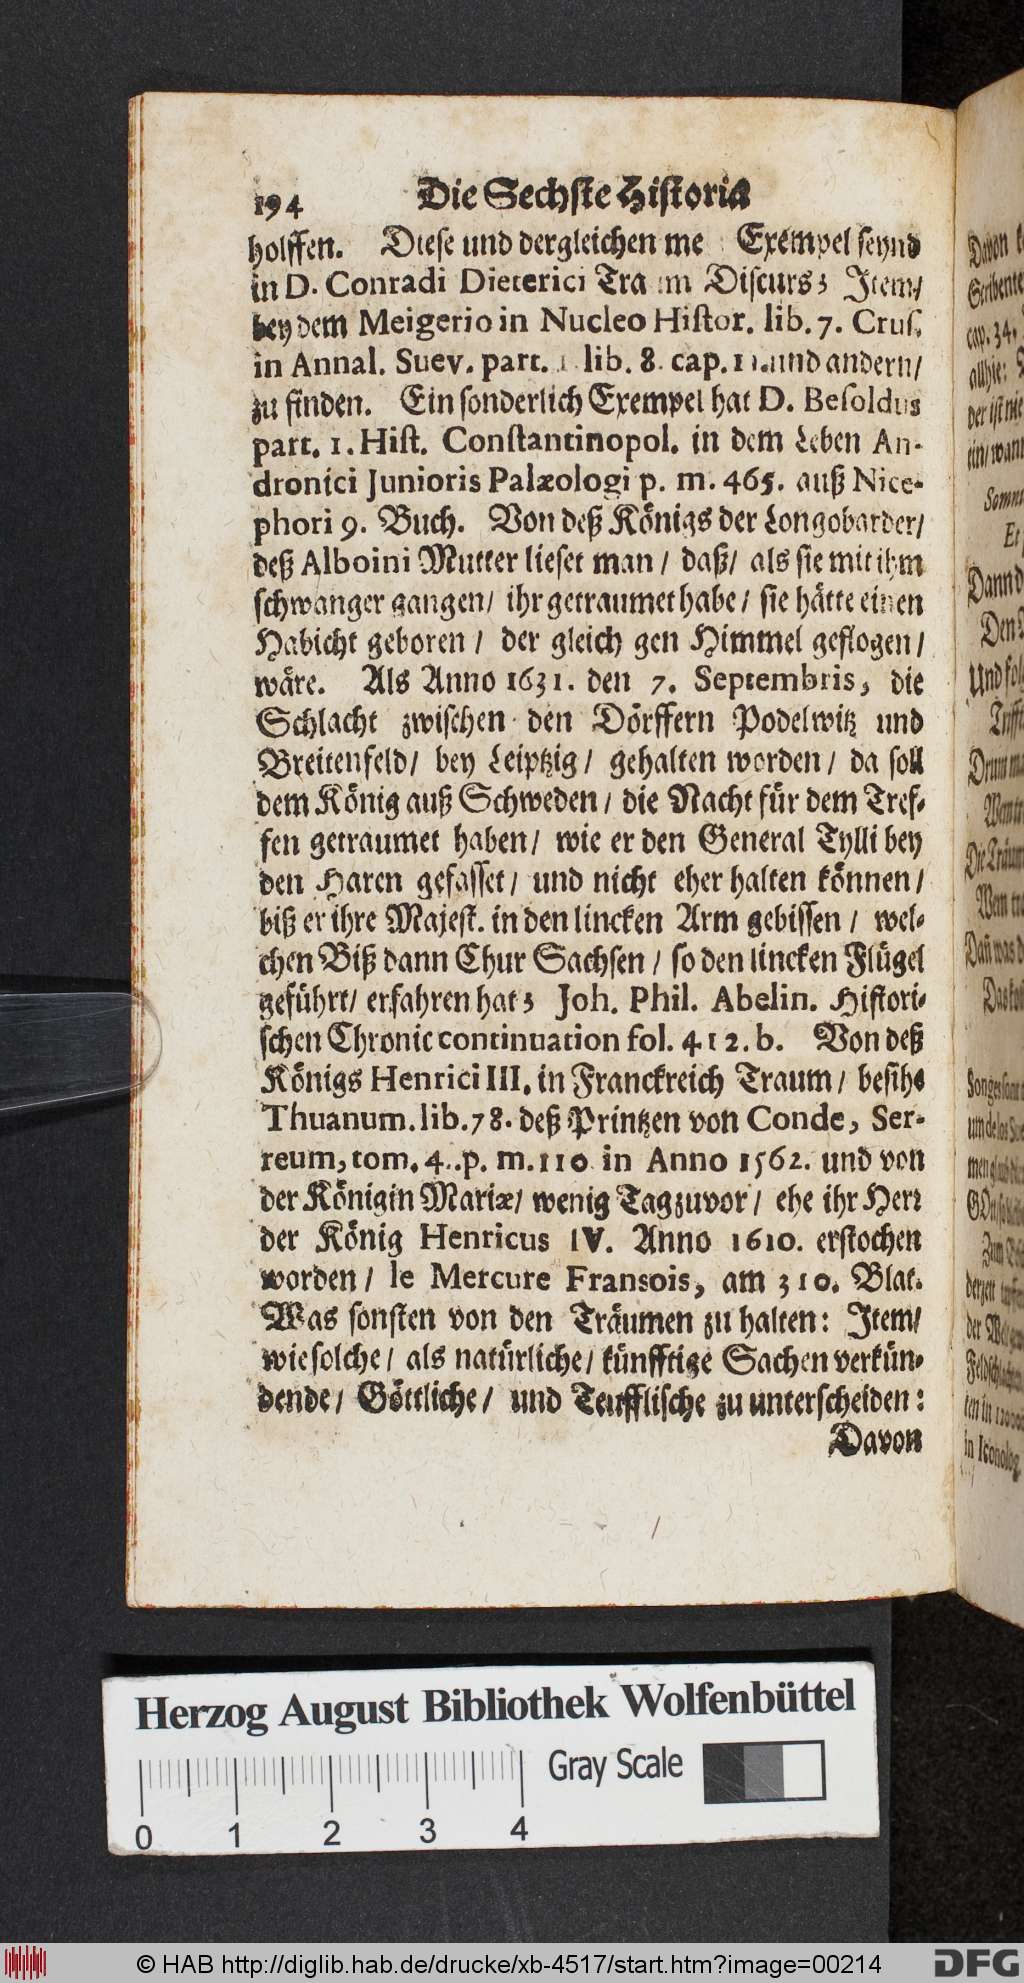 194 Die Sechste Histori
holffen. Diese und dergleichen me Exempel seynd
in D. Conradi Dieterici Tra m Discurs; Item/
bey dem Meigerio in Nucleo Histor. lib. 7. Crus.
in Annal. Suev. part. lib. 8. cap. 11. und andern/
zu finden. Ein sonderlich Exempel hat D. Besoldus
part. 1. Hist. Constantinopol. in dem Leben An-
dronici Junioris Palæologi p. m. 465. auß Nice-
phori 9. Buch. Von deß Königs der Longobarder/
deß Alboini Mutter lieset man / daß/ als sie mit ihm
schwanger gangen/ ihr getraumet habe/ sie hätte einen
Habicht geboren / der gleich gen Himmel geflogen/
wäre. Als Anno 1631. den 7. Septembris, die
Schlacht zwischen den Dörffern Podelwitz und
Breitenfeld/ bey Leiptzig/ gehalten worden/ da soll
dem König auß Schweden/ die Nacht für dem Tref-
fen getraumet haben/ wie er den General Tylli bey
den Haren gefasset/ und nicht eher halten können/
biß er ihre Majest. in den lincken Arm gebissen/ wel-
chen Biß dann Chur Sachsen/ so den lincken Flügel
geführt/ erfahren hat; Joh. Phil. Abelin. Histori-
schen Chronic continuation fol. 412. b. Von deß
Königs Henrici III. in Franckreich Traum/ besihe
Thuanum. lib. 78. deß Printzen von Conde, Ser-
reum, tom. 4. p. m. 110 in Anno 1562. und von
der Königin Mariæ/ wenig Tag zuvor/ ehe ihr Herr
der König Henricus IV. Anno 1610. erstochen
worden/ le Mercure Fransois, am 310. Blat.
Was sonsten von den Träumen zu halten: Item/
wie solche/ als natürliche/ künfftige Sachen verkün-
dende/ Göttliche/ und Teufflische zu unterscheiden:
Davon
Herzog August Bibliothek Wolfenbüttel
Gray Scale
0 1 2 3 4
© HAB http://diglib.hab.de/drucke/xb-4517/start.htm?image=00214
DFG